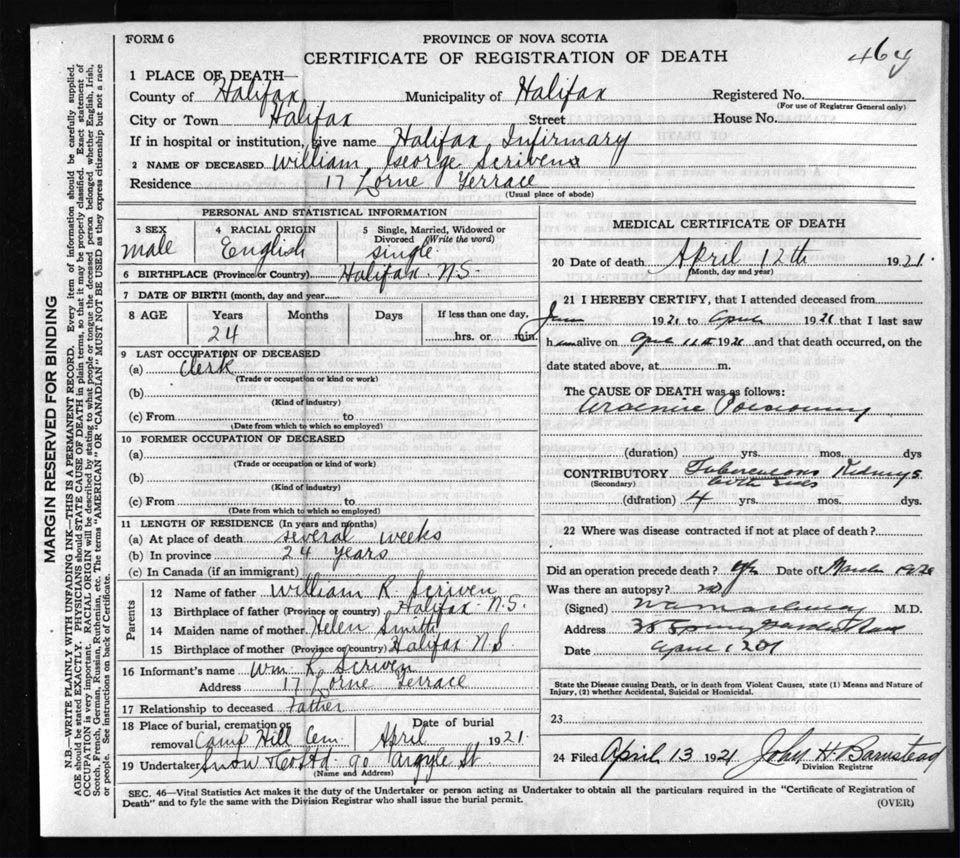 FORM 6
PROVINCE OF NOVA SCOTIA
CERTIFICATE OF REGISTRATION OF DEATH
464
1 PLACE OF DEATH
County of Halifax Municipality of Halifax Registered No.
(For use of Registrar General only)
City or Town Halifax Street House No.
If in hospital or institution, give name Halifax Infirmary
2 NAME OF DECEASED William George Scriven
Residence 17 Lorne Terrace
(Usual place of abode)
PERSONAL AND STATISTICAL INFORMATION
3 SEX male
4 RACIAL ORIGIN English
5 Single, Married, Widowed or Divorced (Write the word) single
6 BIRTHPLACE (Province or Country) Halifax N.S.
7 DATE OF BIRTH (month, day and year)
8 AGE Years 24 Months Days If less than one day, hrs. or min.
9 LAST OCCUPATION OF DECEASED
(a) Clerk
(Trade or occupation or kind or work)
(b)
(Kind of industry)
(c) From to
(Date from which to which so employed)
10 FORMER OCCUPATION OF DECEASED
(a)
(Trade or occupation or kind of work)
(b)
(Kind of industry)
(c) From to
(Date from which to which so employed)
11 LENGTH OF RESIDENCE (In years and months)
(a) At place of death several weeks
(b) In province 24 years
(c) In Canada (if an immigrant)
Parents
12 Name of father William R. Scriven
13 Birthplace of father (Province or country) Halifax N.S.
14 Maiden name of mother Helen Smith
15 Birthplace of mother (Province or country) Halifax N S
16 Informant's name Wm R. Scriven
Address 17 Lorne Terrace
17 Relationship to deceased Father
18 Place of burial, cremation or removal Camp Hill Cem. Date of burial April 1921.
19 Undertaker Snow & Co Ltd 90 Argyle St
(Name and Address)
MEDICAL CERTIFICATE OF DEATH
20 Date of death April 12th 1921.
(Month, day and year)
21 I HEREBY CERTIFY, that I attended deceased from
1921 to April 1921 that I last saw
h im alive on April 11th 1921 and that death occurred, on the
date stated above, at m.
The CAUSE OF DEATH was as follows:
Uraemic Poisoning
(duration) yrs. mos. dys
CONTRIBUTORY Tuberculous Kidneys
(Secondary) both sides
(duration) 4 yrs. mos. dys.
22 Where was disease contracted if not at place of death?
Did an operation precede death? yes Date of March 1920
Was there an autopsy? no
(Signed) M.D.
Address Spring Garden Road
Date April
State the Disease causing Death, or in death from Violent Causes, state (1) Means and Nature of
Injury, (2) whether Accidental, Suicidal or Homicidal.
23
24 Filed April 13 1921 John H Barnstead
Division Registrar
SEC. 46—Vital Statistics Act makes it the duty of the Undertaker or person acting as Undertaker to obtain all the particulars required in the "Certificate of Registration of
Death" and to fyle the same with the Division Registrar who shall issue the burial permit.
(OVER)
MARGIN RESERVED FOR BINDING
N.B.—WRITE PLAINLY WITH UNFADING INK—THIS IS A PERMANENT RECORD. Every item of information should be carefully supplied.
AGE should be stated EXACTLY. PHYSICIANS should STATE CAUSE OF DEATH in plain terms, so that it may be properly classified. Exact statement of
OCCUPATION is very important. RACIAL ORIGIN will be described by stating to what people or tongue the deceased person belonged whether English, Irish,
Scotch, French, German, Russian, Ruthenian, etc. The terms "AMERICAN" OR "CANADIAN" MUST NOT BE USED as they express citizenship but not a race
or people. See instructions on back of Certificate.